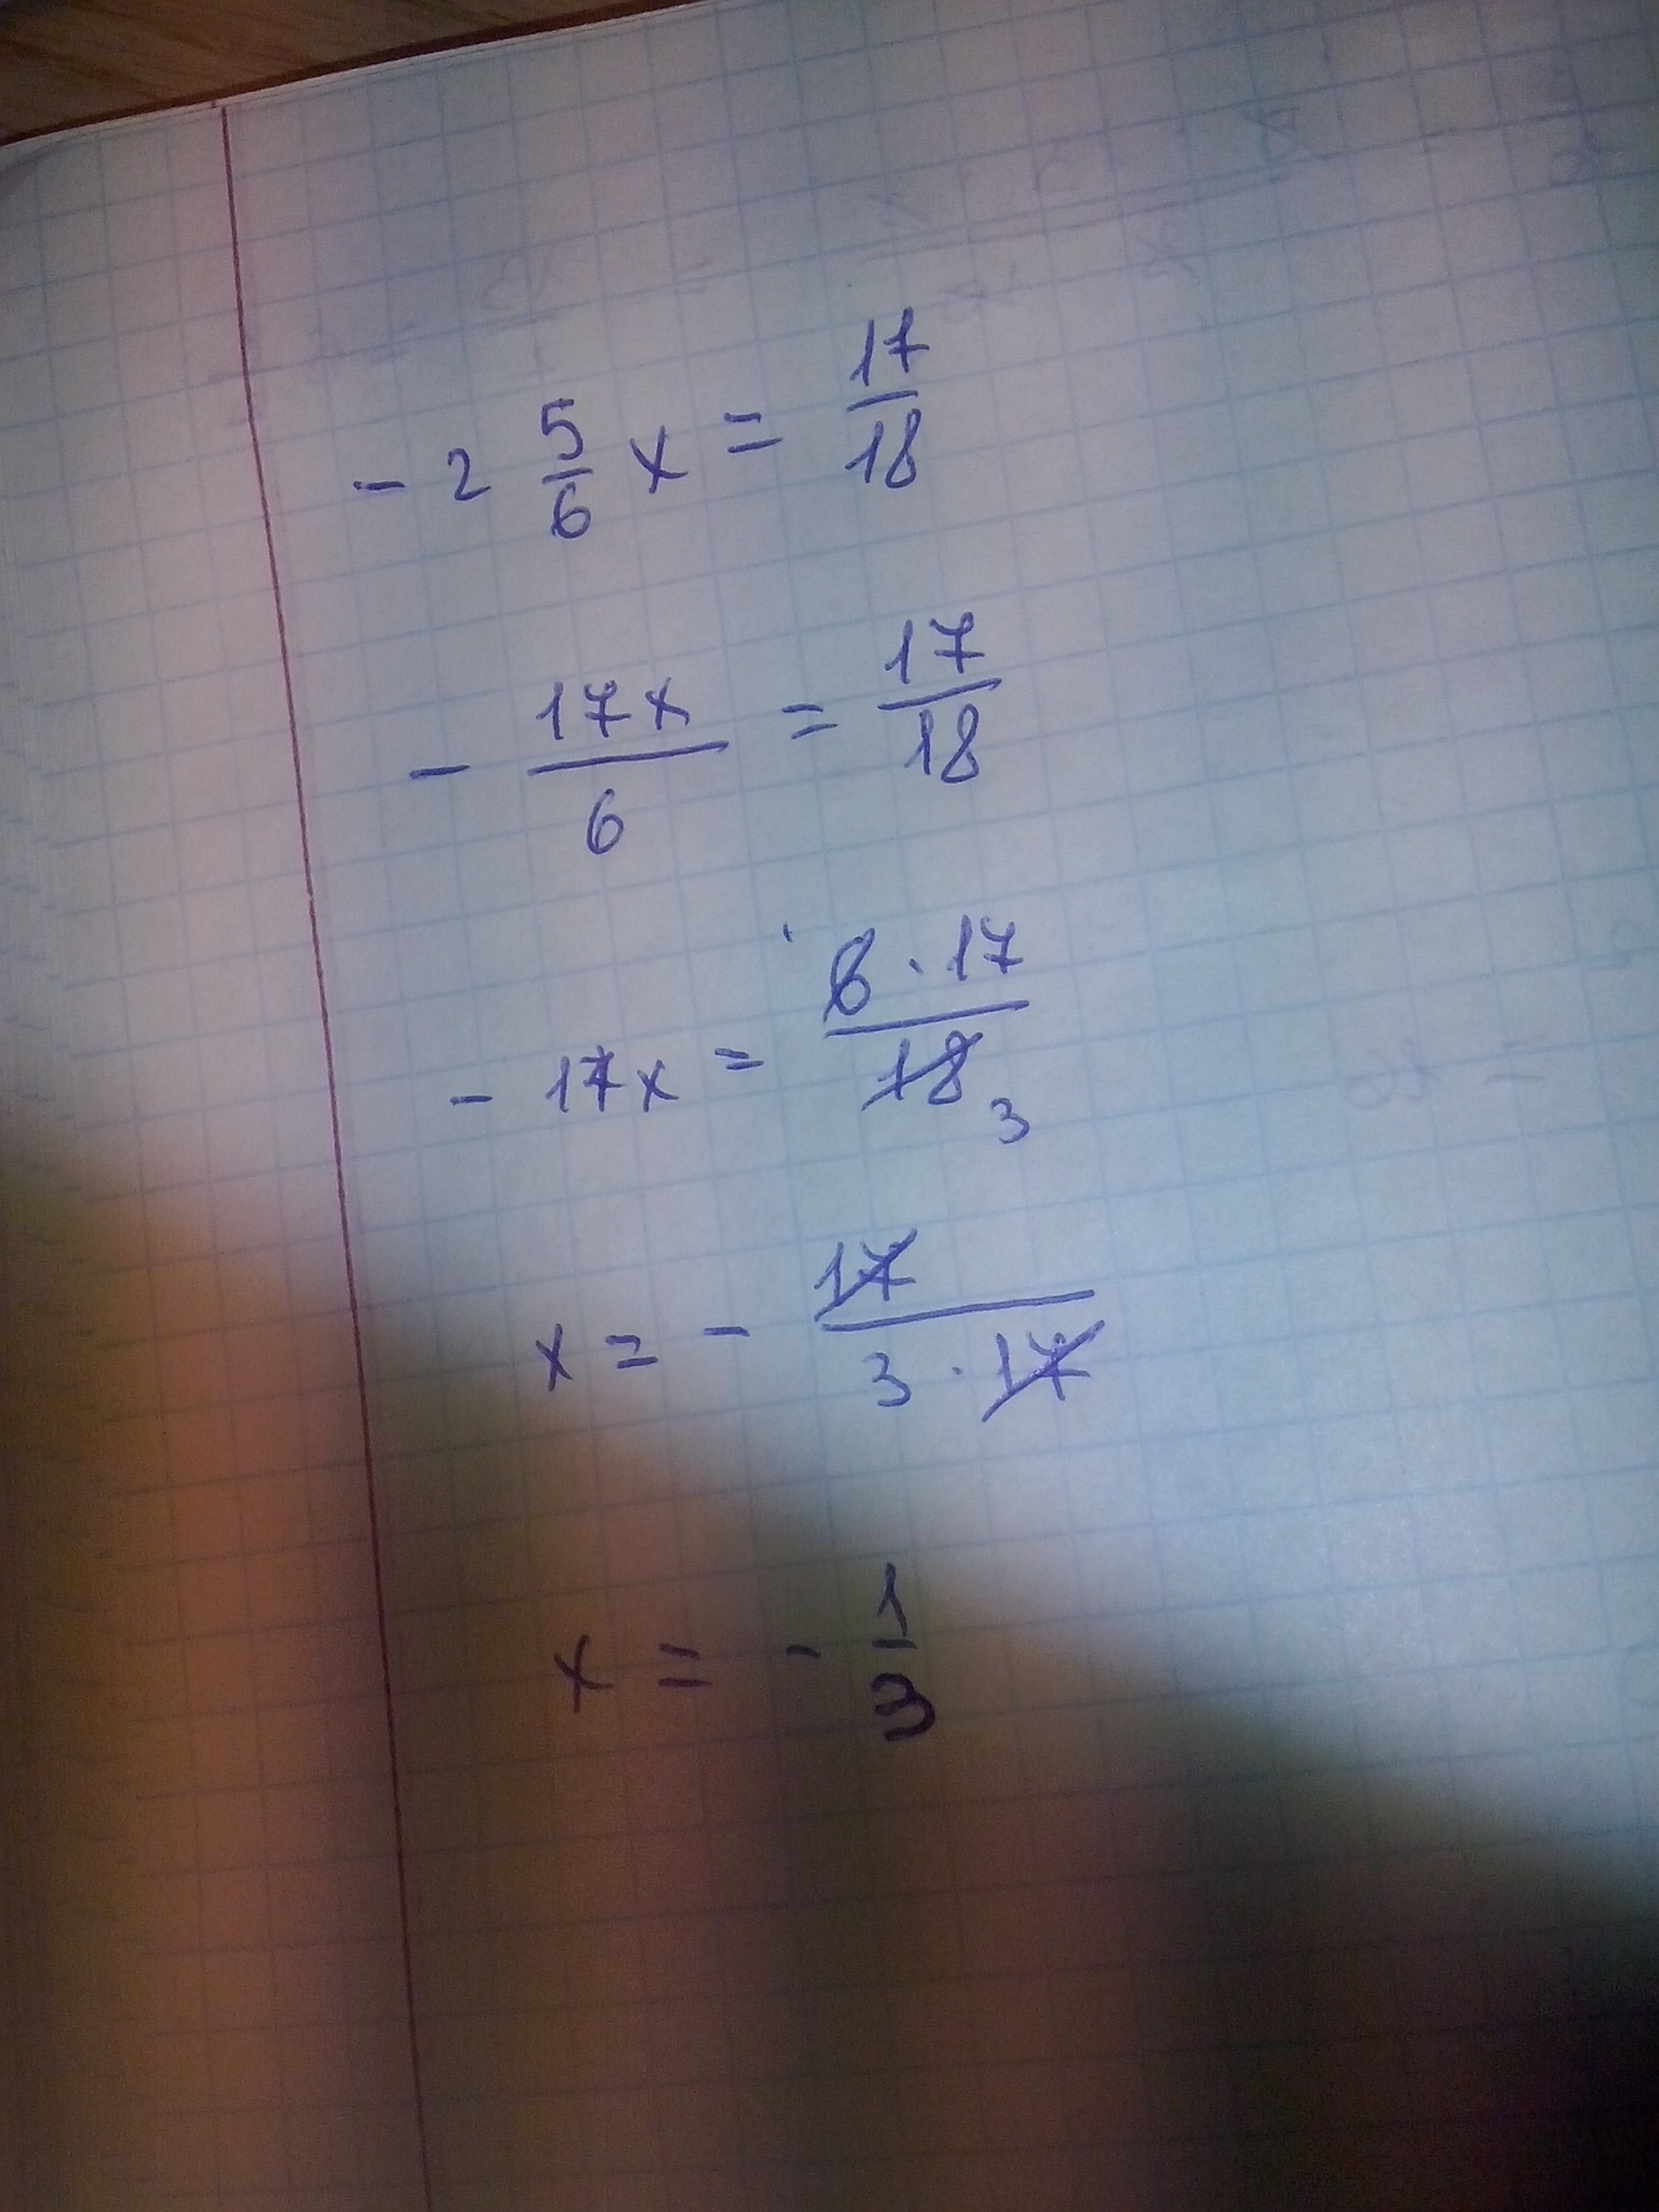 - 2 5/6 x = 17/18
- 17x/6 = 17/18
- 17x = 6 · 17/18 3
x = - 17/3 · 17
x = - 1/3